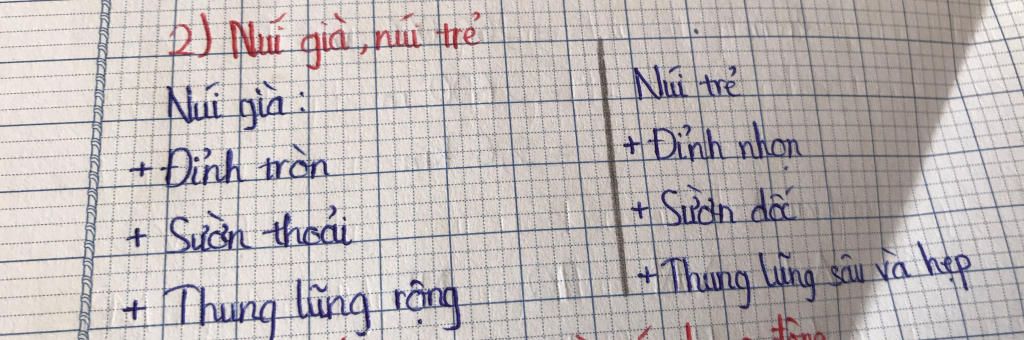 2) Núi già, núi trẻ
Núi già:
+ Đỉnh tròn
+ Sườn thoải
+ Thung lũng rộng
Núi trẻ
+ Đỉnh nhọn
+ Sườn dốc
+ Thung lũng sâu và hẹp